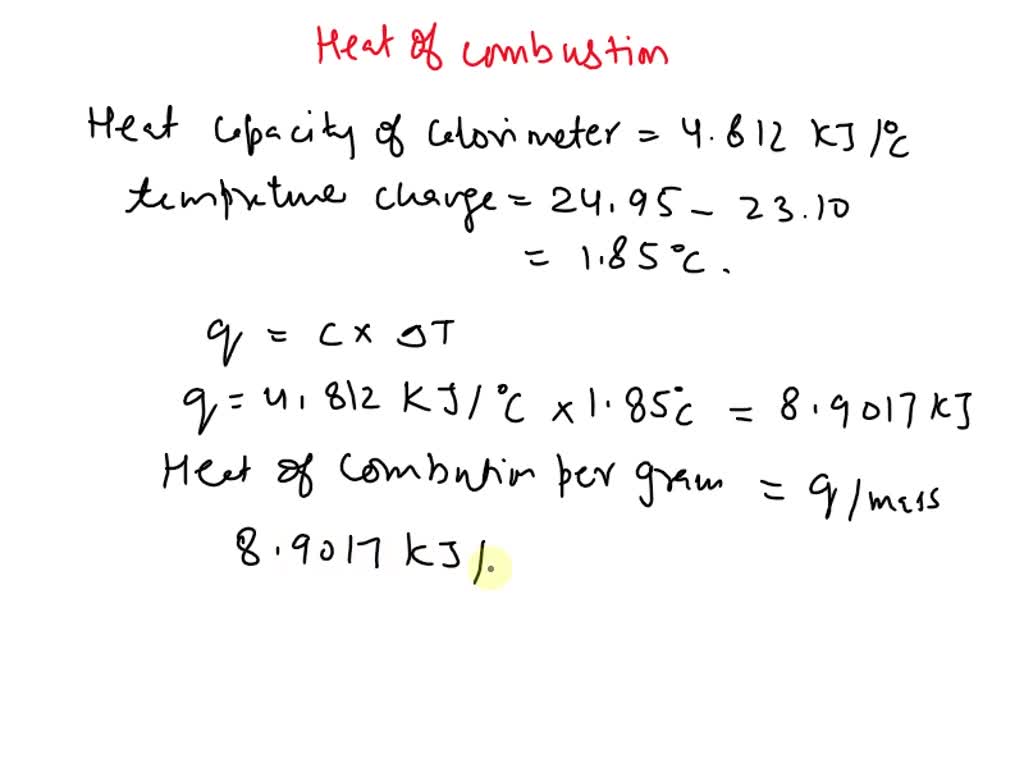 Heat of combustion
Heat capacity of calorimeter = 4.812 KJ/°C
temprature change = 24.95 - 23.10
= 1.85°C.
q = C x ΔT
q = 4.812 KJ/°C x 1.85°C = 8.9017 KJ
Heat of combution per gram = q/mass
8.9017 KJ/